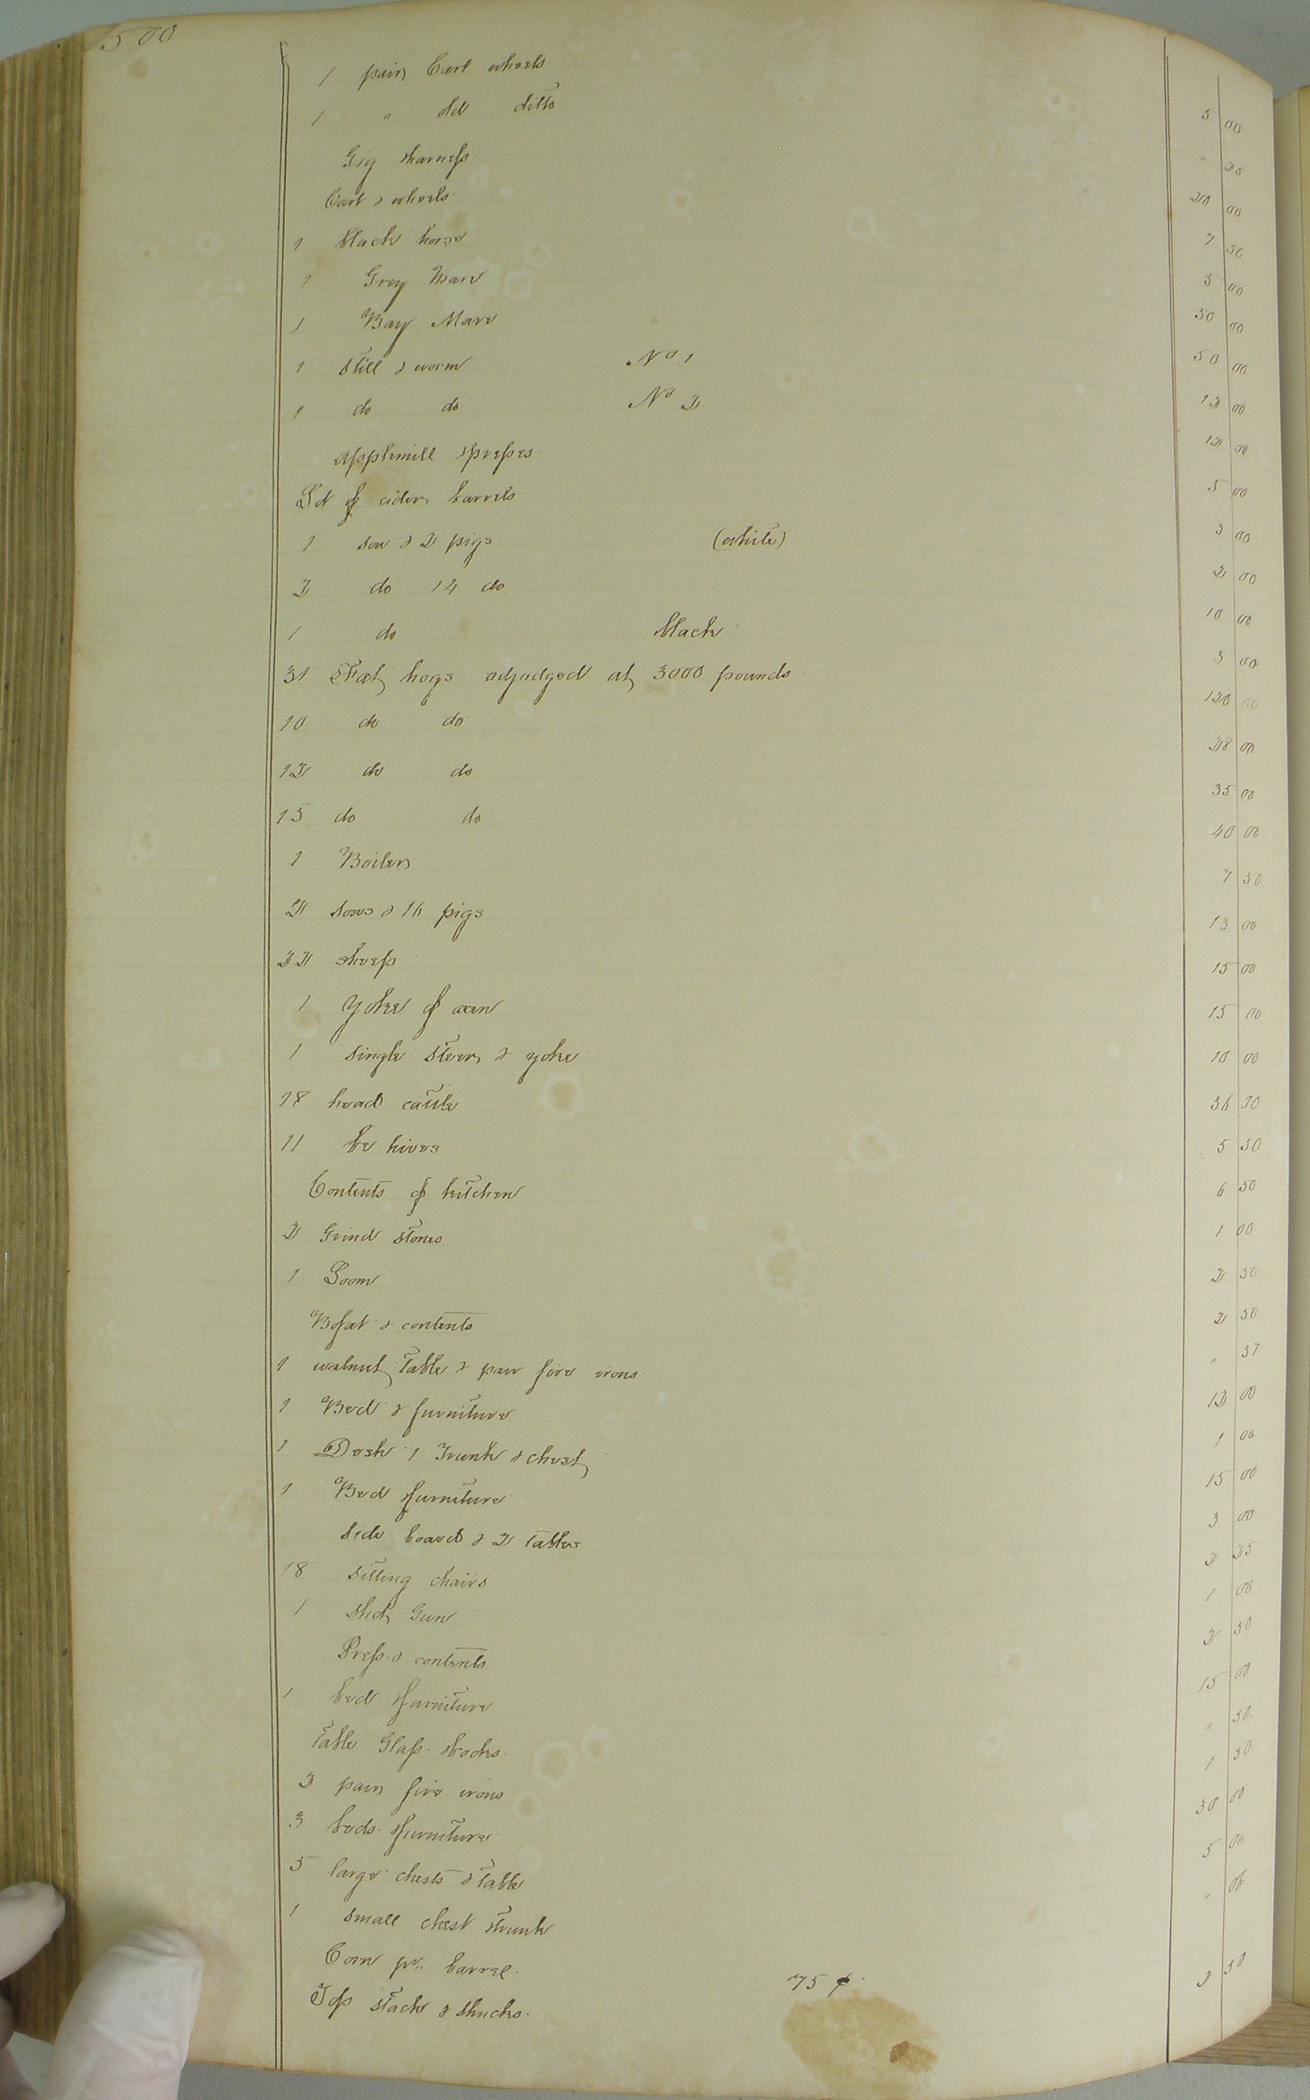 500
1 pair Cart wheels 5 00
1 " old ditto " 25
Gig & harness 20 00
Cart & wheels 7 50
1 black horse 5 00
1 Grey Mare 50 00
1 Bay Mare 50 00
1 Still & worm No 1 12 00
1 do do No 2 12 00
applemill & presses 5 00
Lot of cider barrels 3 00
1 sow & 2 pigs (white) 2 00
2 do 14 do 10 00
1 do black 3 00
31 Fat hogs adjudged at 3000 pounds 120 00
10 do do 28 00
12 do do 35 00
15 do do 40 00
1 Boiler 7 50
2 sows & 16 pigs 13 00
22 sheep 15 00
1 Yoke of oxen 15 00
1 single steer & yoke 10 00
18 head cattle 36 30
11 be hives 5 50
Contents of kitchen 6 50
2 Grind stones 1 00
1 Loom 2 50
Bofat & contents 2 50
1 walnut Table & pair fire irons " 37
1 Bed & furniture 12 00
1 Desk 1 Trunk & chest 1 00
1 Bed & furniture 15 00
Side board & 2 Tables 3 00
18 sitting chairs 2 25
1 shot Gun 1 00
Press & contents 2 50
1 bed & furniture 15 00
Table Glass & books " 50
3 pair fire irons 1 50
3 beds & furniture 30 00
5 large chests & Table 5 00
1 small chest & trunk "
Corn pr. barrel 75 ¢
Top stack & shucks 50